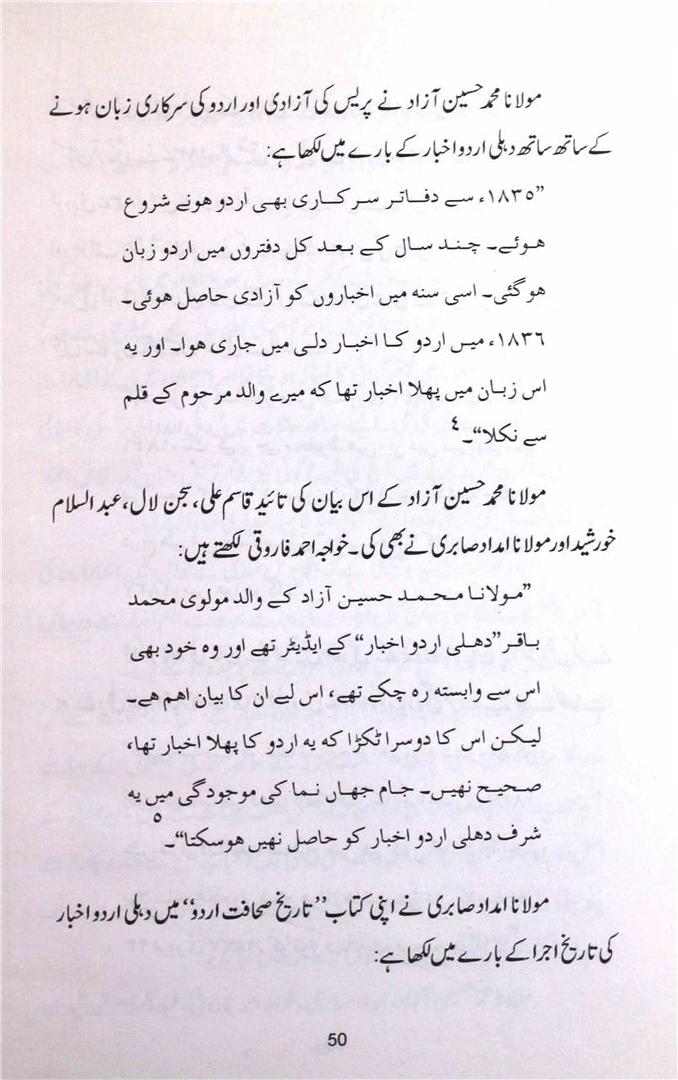 مولانا محمد حسین آزاد نے پریس کی آزادی اور اردو کی سرکاری زبان ہونے
کے ساتھ ساتھ دہلی اردو اخبار کے بارے میں لکھا ہے:
”۱۸۳۵ء سے دفاتر سرکاری بھی اردو ہونے شروع
ہوئے۔ چند سال کے بعد کل دفتروں میں اردو زبان
ہوگئی۔ اسی سنہ میں اخباروں کو آزادی حاصل ہوئی۔
۱۸۳۶ء میں اردو کا اخبار دلی میں جاری ہوا۔ اور یہ
اس زبان میں پہلا اخبار تھا کہ میرے والد مرحوم کے قلم
سے نکلا“۔۴
مولانا محمد حسین آزاد کے اس بیان کی تائید قاسم علی، سجن لال، عبد السلام
خورشید اور مولانا امداد صابری نے بھی کی۔ خواجہ احمد فاروقی لکھتے ہیں:
”مولانا محمد حسین آزاد کے والد مولوی محمد
باقر ”دهلی اردو اخبار“ کے ایڈیٹر تھے اور وہ خود بھی
اس سے وابستہ رہ چکے تھے، اس لیے ان کا بیان اہم ہے۔
لیکن اس کا دوسرا ٹکڑا کہ یہ اردو کا پہلا اخبار تھا،
صحیح نہیں۔ جام جہاں نما کی موجودگی میں یہ
شرف دهلی اردو اخبار کو حاصل نہیں ہوسکتا“۔۵
مولانا امداد صابری نے اپنی کتاب ”تاریخ صحافت اردو“ میں دہلی اردو اخبار
کی تاریخ اجرا کے بارے میں لکھا ہے:
50